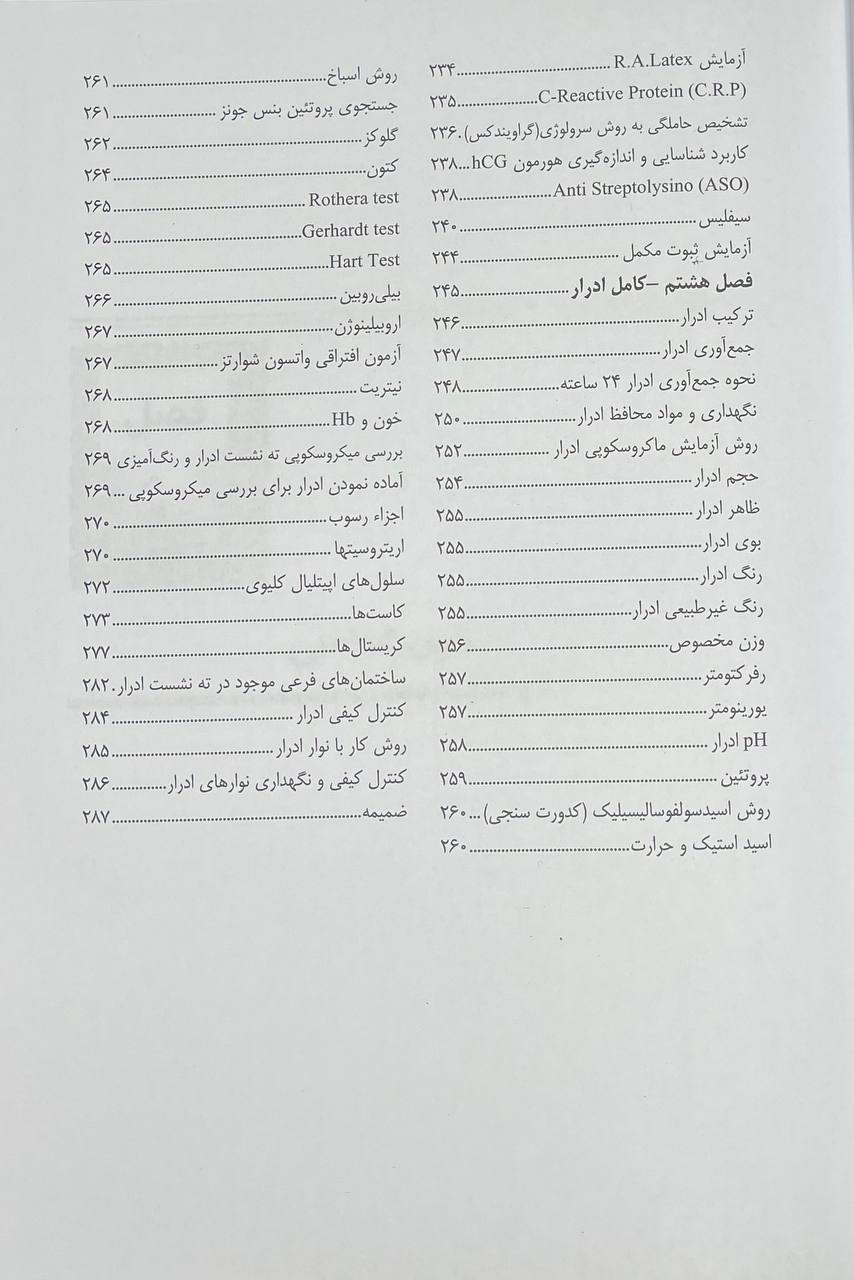 آزمایش R.A.Latex ..................................... ۲۳۴
C-Reactive Protein (C.R.P) ................... ۲۳۵
تشخیص حاملگی به روش سرولوژی(گراویندکس). ۲۳۶
کاربرد شناسایی و اندازه‌گیری هورمون hCG... ۲۳۸
Anti Streptolysino (ASO) ...................... ۲۳۸
سیفلیس ......................................................... ۲۴۰
آزمایش ثبوت مکمل ............................................. ۲۴۴
فصل هشتم –کامل ادرار .......................... ۲۴۵
ترکیب ادرار ..................................................... ۲۴۶
جمع‌آوری ادرار ................................................ ۲۴۷
نحوه جمع‌آوری ادرار ۲۴ ساعته ....................... ۲۴۸
نگهداری و مواد محافظ ادرار ........................... ۲۵۰
روش آزمایش ماکروسکوپی ادرار ..................... ۲۵۲
حجم ادرار ....................................................... ۲۵۴
ظاهر ادرار ...................................................... ۲۵۵
بوی ادرار ........................................................ ۲۵۵
رنگ ادرار ....................................................... ۲۵۵
رنگ غیرطبیعی ادرار ....................................... ۲۵۵
وزن مخصوص ................................................. ۲۵۶
رفرکتومتر ....................................................... ۲۵۷
یورینومتر ........................................................ ۲۵۷
pH ادرار ......................................................... ۲۵۸
پروتئین ........................................................... ۲۵۹
روش اسیدسولفوسالیسیلیک (کدورت سنجی) ... ۲۶۰
اسید استیک و حرارت ....................................... ۲۶۰
روش اسباخ ..................................................... ۲۶۱
جستجوی پروتئین بنس جونز .......................... ۲۶۱
گلوکز ............................................................. ۲۶۲
کتون ............................................................... ۲۶۴
Rothera test ............................................... ۲۶۵
Gerhardt test ............................................. ۲۶۵
Hart Test ................................................... ۲۶۵
بیلی‌روبین ...................................................... ۲۶۶
اروبیلینوژن ..................................................... ۲۶۷
آزمون افتراقی واتسون شوارتز .......................... ۲۶۷
نیتریت ........................................................... ۲۶۸
خون و Hb ..................................................... ۲۶۸
بررسی میکروسکوپی ته نشست ادرار و رنگ‌آمیزی ۲۶۹
آماده نمودن ادرار برای بررسی میکروسکوپی ... ۲۶۹
اجزاء رسوب .................................................... ۲۷۰
اریتروسیتها ..................................................... ۲۷۰
سلول‌های اپیتلیال کلیوی ................................ ۲۷۲
کاست‌ها .......................................................... ۲۷۳
کریستال‌ها ...................................................... ۲۷۷
ساختمان‌های فرعی موجود در ته نشست ادرار. ۲۸۲
کنترل کیفی ادرار ............................................ ۲۸۴
روش کار با نوار ادرار ....................................... ۲۸۵
کنترل کیفی و نگهداری نوارهای ادرار ............. ۲۸۶
ضمیمه ............................................................ ۲۸۷